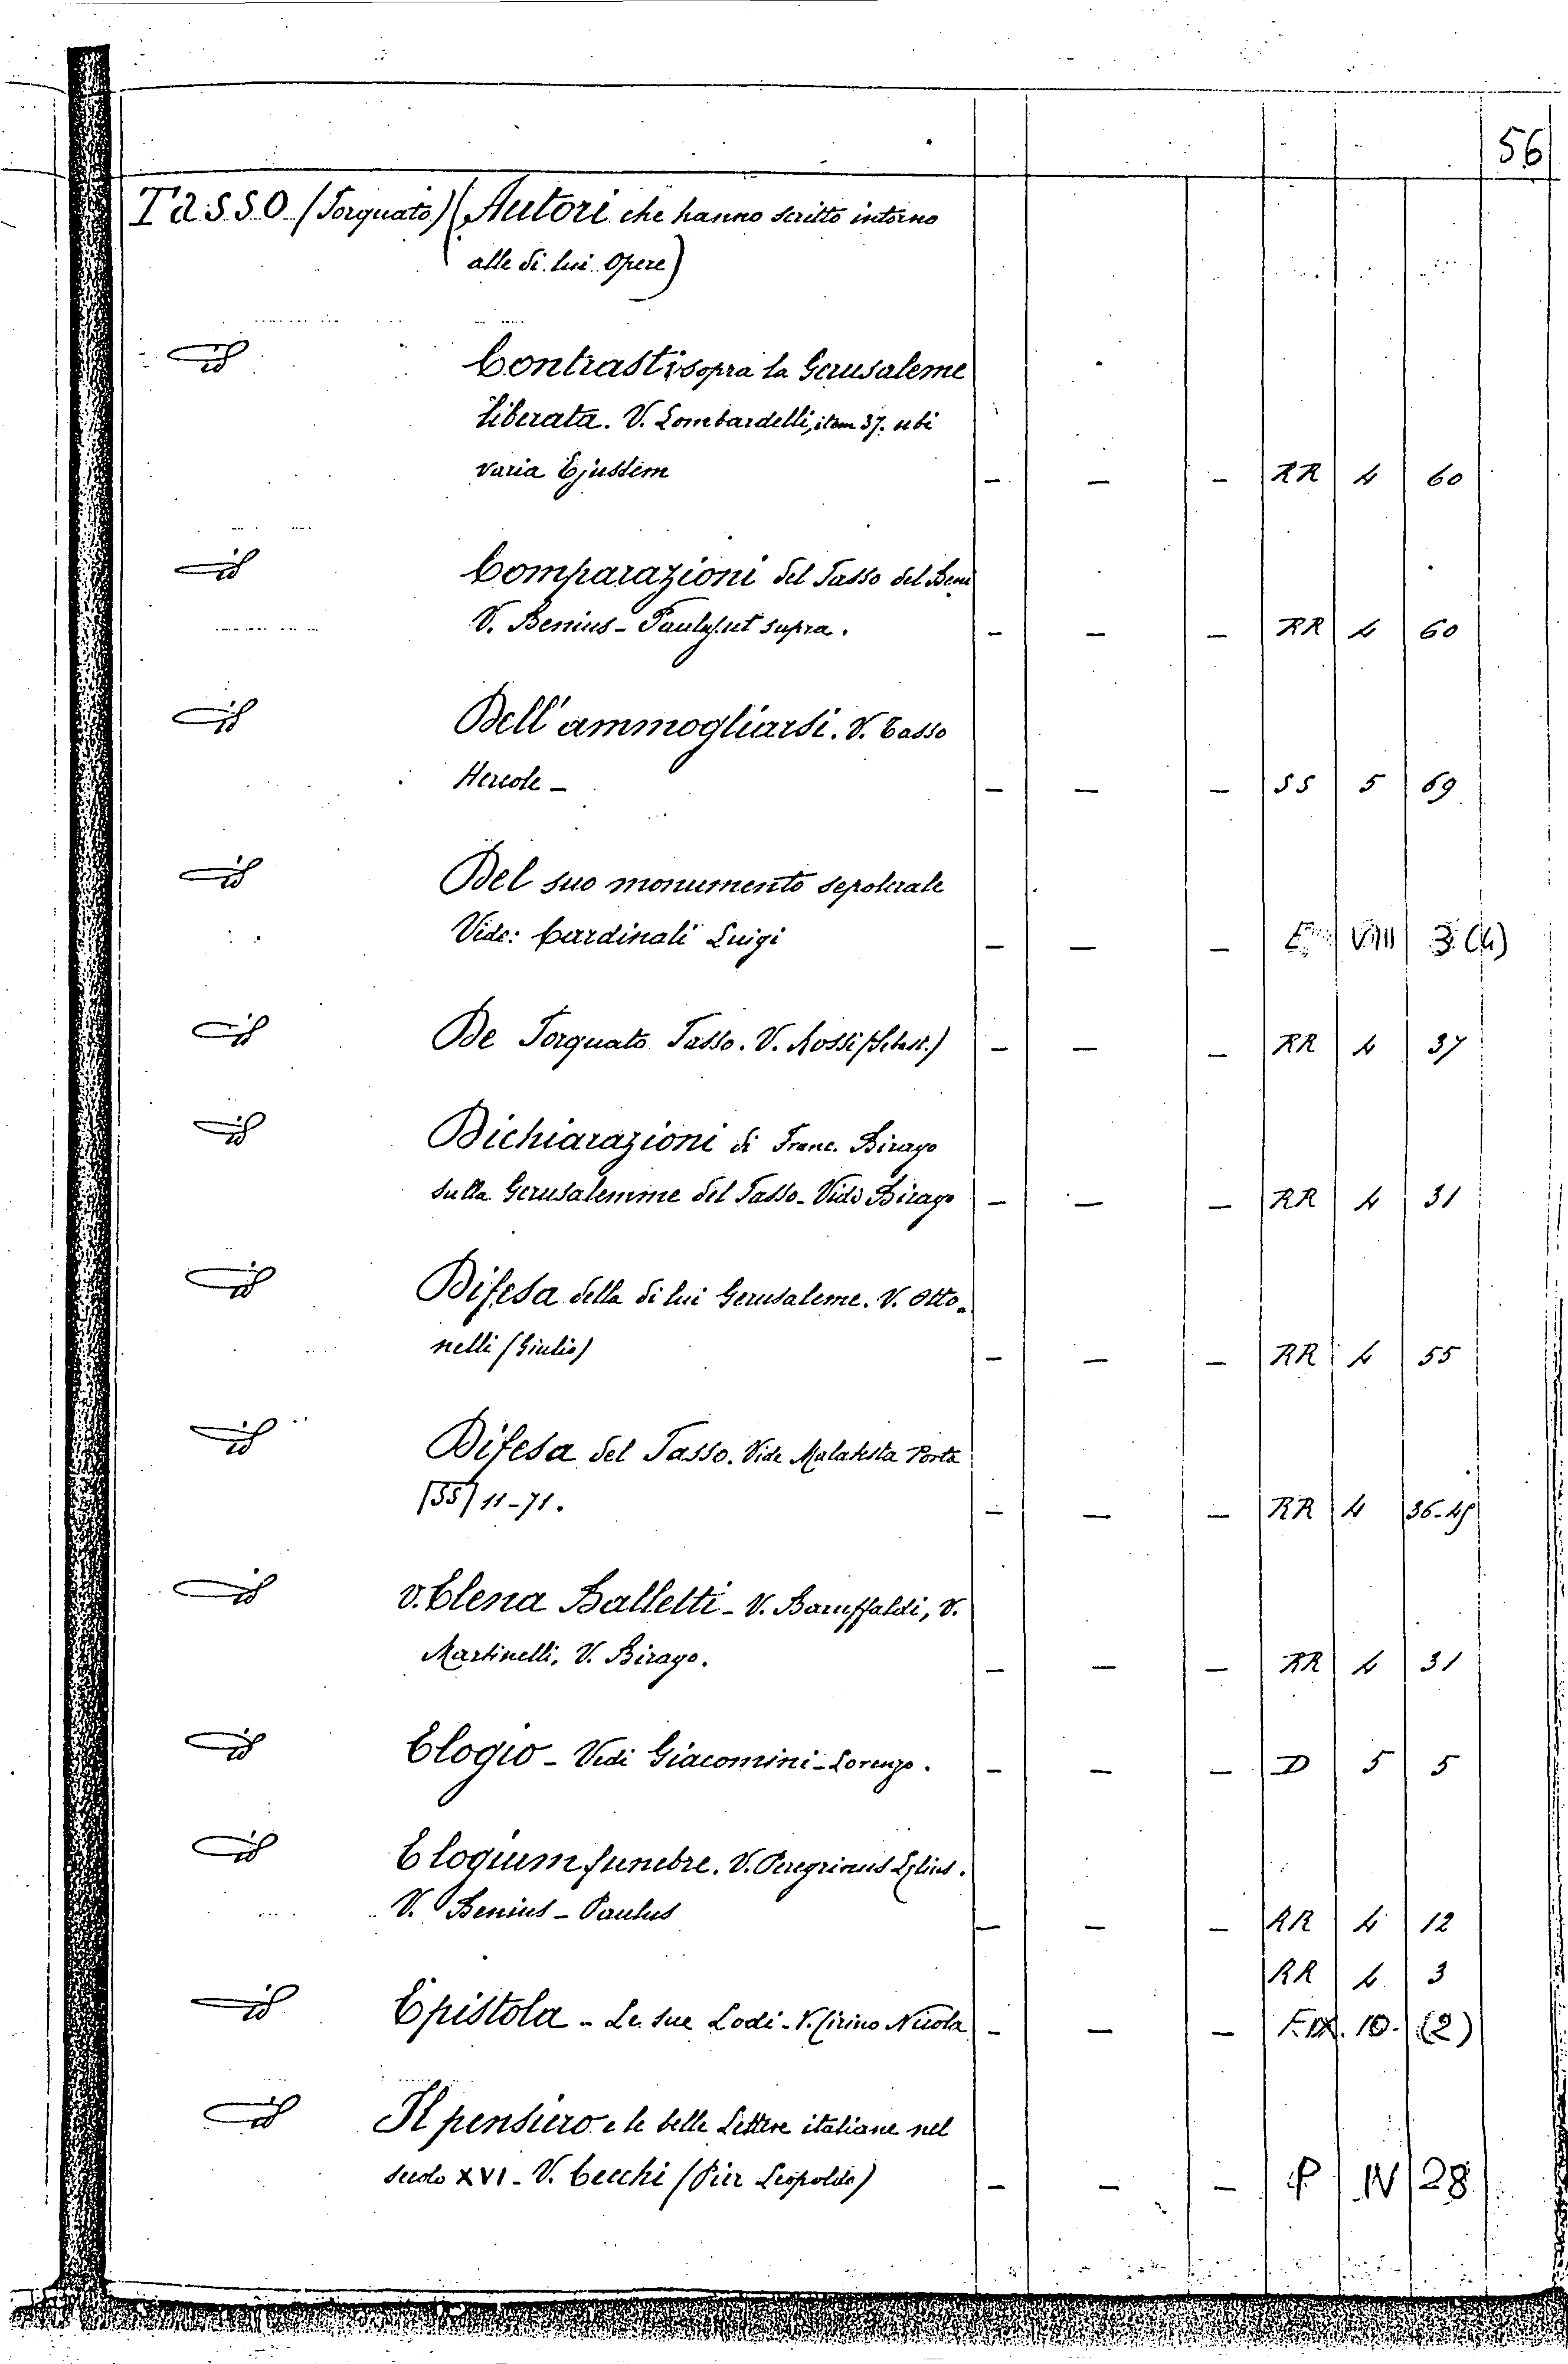 56
Tasso (Torquato) (Autori che hanno scritto intorno
alle di lui Opere)
id Contrasti sopra la Gerusaleme
liberata. V. Lombardelli, item 37. ubi
varia Ejusdem — — — RR 4 60
id Comparazioni del Tasso del Beni
V. Benius - Paulus ut supra. — — — RR 4 60
id Dell'ammogliarsi. V. Tasso
Hercole — — — — SS 5 69
id Del suo monumento sepolcrale
Vide: Cardinali Luigi — — — E VIII 3 (4)
id De Torquato Tasso. V. Rossi (Sebast.) — — — RR 4 37
id Dichiarazioni di Franc. Birago
sulla Gerusalemme del Tasso - Vide Birago — — — RR 4 31
id Difesa della di lui Gerusaleme. V. Otto-
nelli (Giulio) — — — RR 4 55
id Difesa del Tasso. Vide Malatesta Porta
[SS] 11-71. — — — RR 4 36-45
id V. Elena Balletti - V. Baruffaldi, V.
Martinelli, V. Birago. — — — RR 4 31
id Elogio - Vedi Giacomini - Lorenzo. — — — D 5 5
id Elogium funebre. V. Peregrinus Lelius.
V. Benius - Paulus — — — RR 4 12
RR 4 3
id Epistola - Le sue Lodi - V. Cirino Nicola — — — F.IX. 10. (2)
id Il pensiero e le belle Lettere italiane nel
secolo XVI - V. Cecchi (Pier Leopoldo) — — — P IV 28